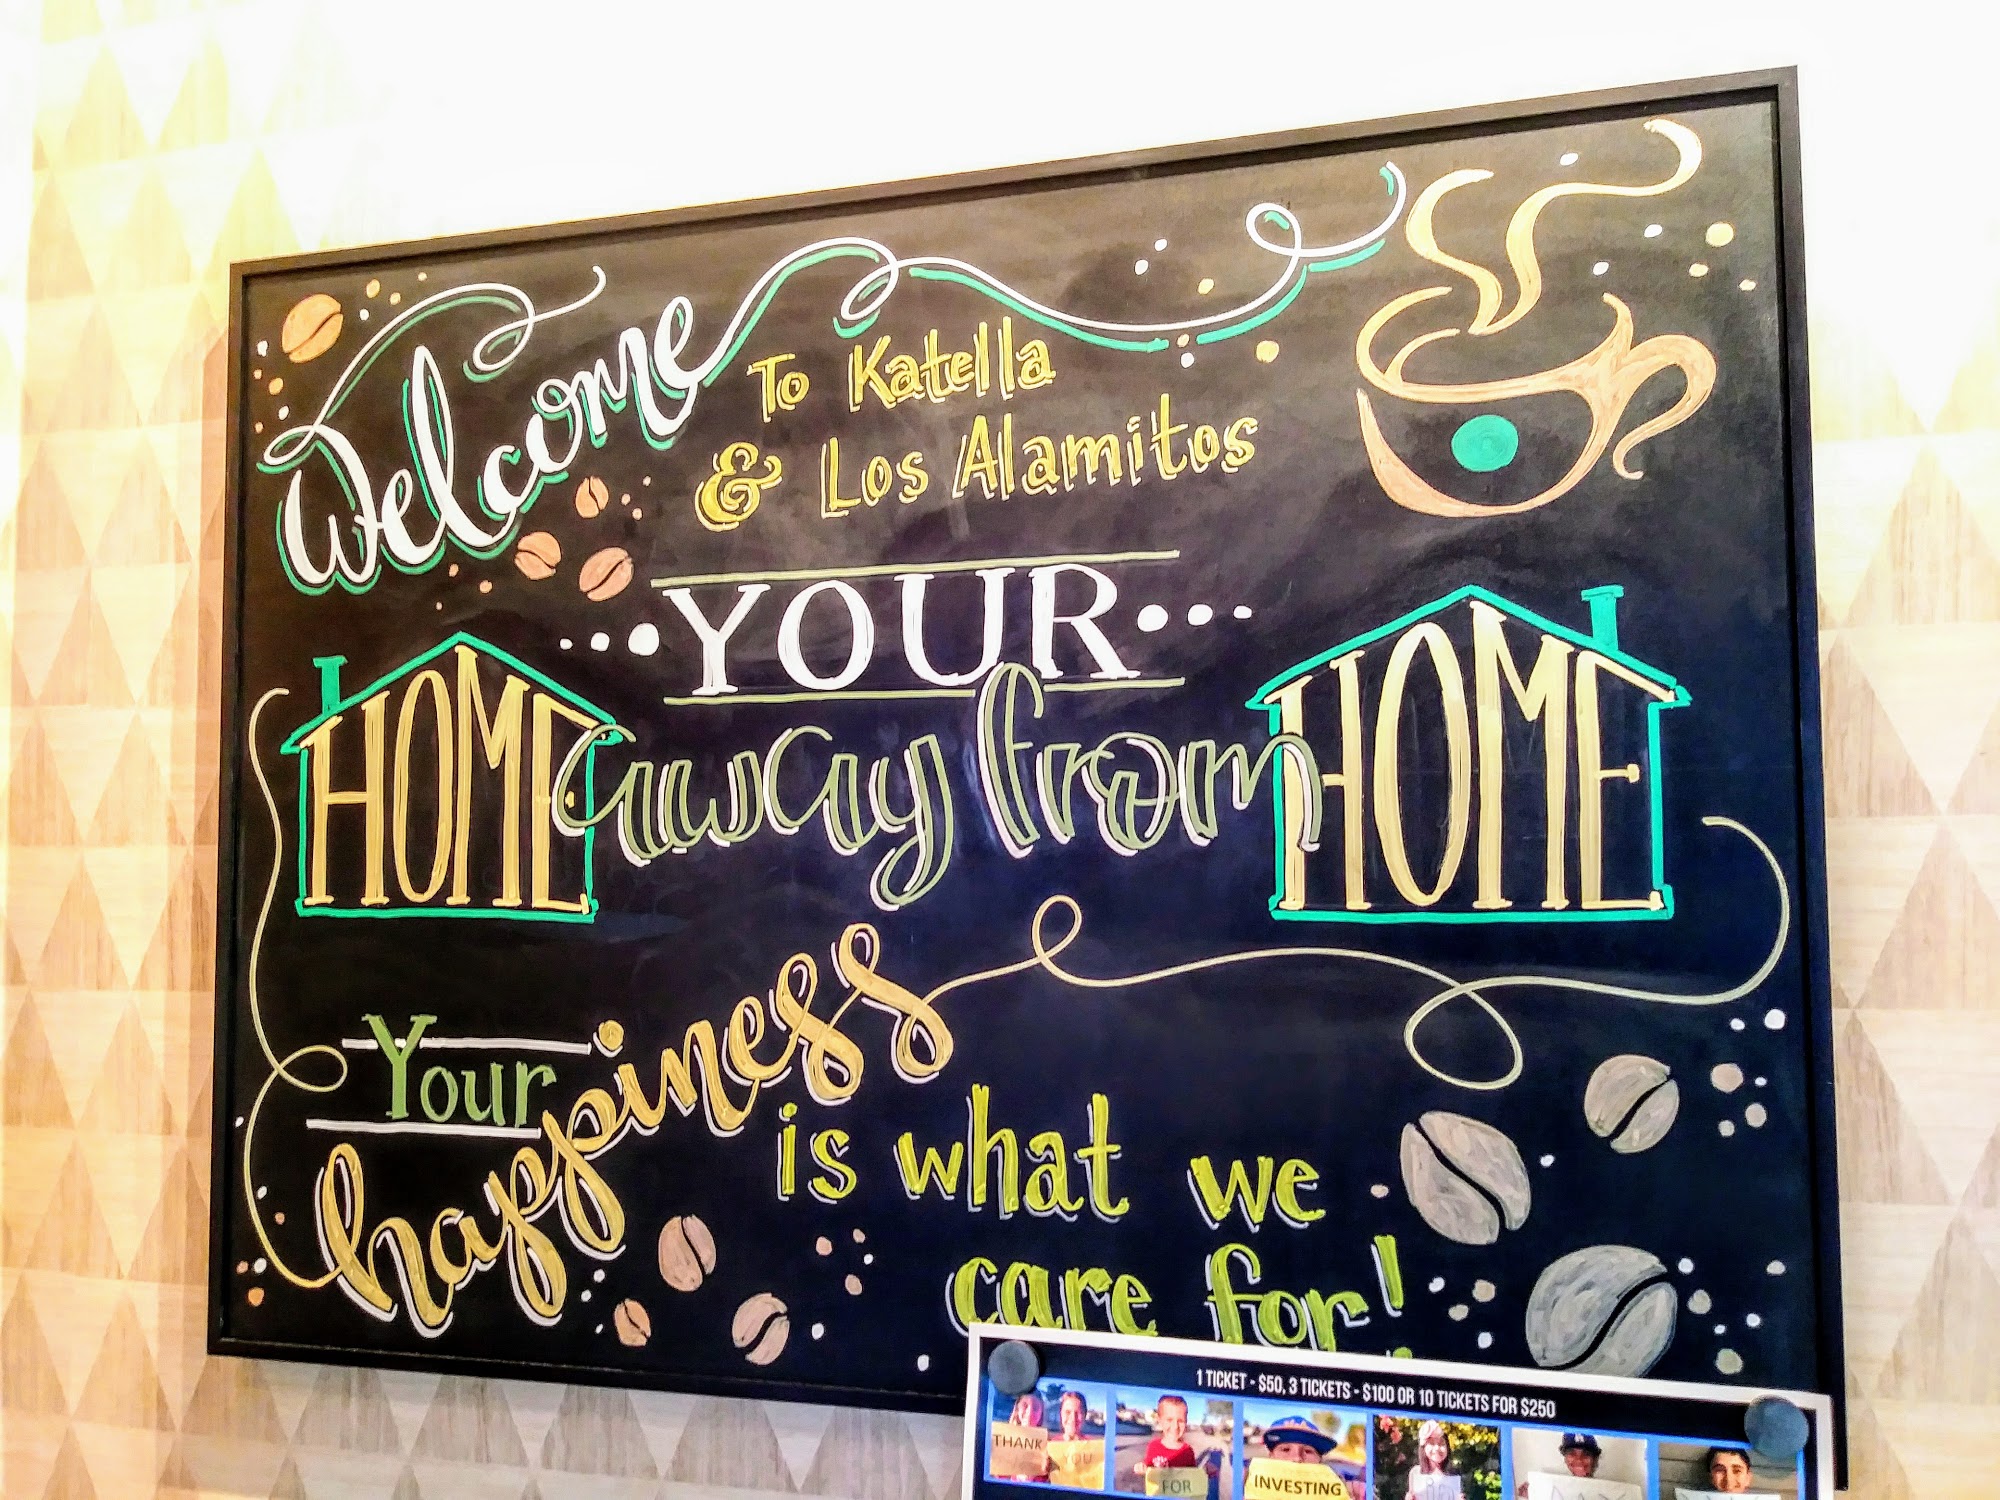 Welcome To Katella
& Los Alamitos
YOUR
HOME away from HOME
Your
happiness
is what we
care for!
1 TICKET - $50, 3 TICKETS - $100 OR 10 TICKETS FOR $250
THANK YOU FOR INVESTING